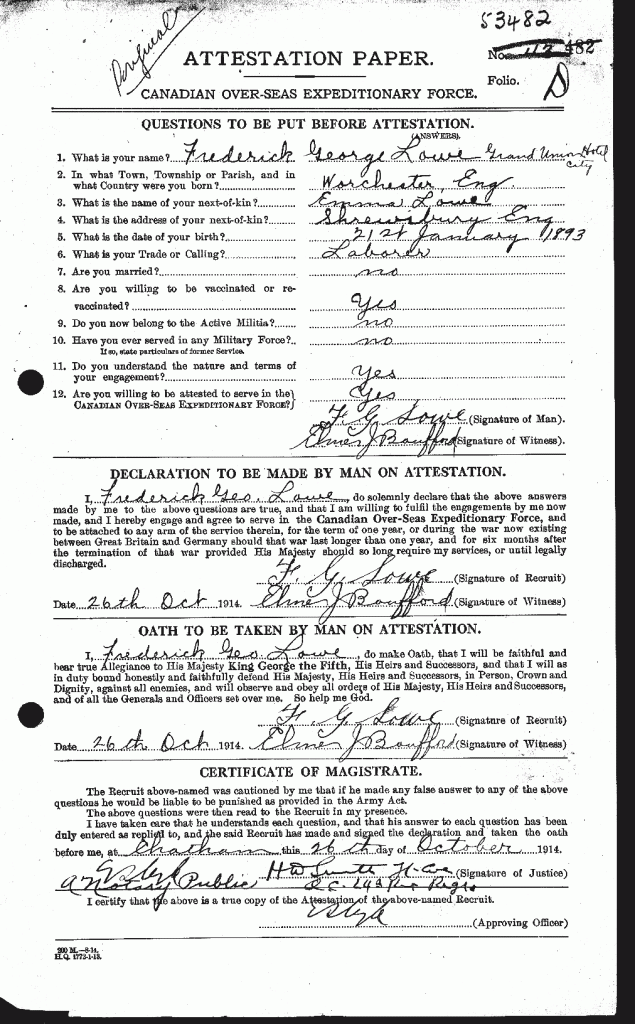 Original
53482
ATTESTATION PAPER.
No. 482
Folio.
CANADIAN OVER-SEAS EXPEDITIONARY FORCE.
QUESTIONS TO BE PUT BEFORE ATTESTATION.
(ANSWERS).
1. What is your name? Frederick George Lowe Grand Union Hotel City
2. In what Town, Township or Parish, and in
what Country were you born? Worchester, Eng.
3. What is the name of your next-of-kin? Emma Lowe
4. What is the address of your next-of-kin? Shrewsbury Eng
5. What is the date of your birth? 21st January 1893
6. What is your Trade or Calling? Laborer
7. Are you married? no
8. Are you willing to be vaccinated or re-
vaccinated? Yes
9. Do you now belong to the Active Militia? no
10. Have you ever served in any Military Force? no
If so, state particulars of former Service.
11. Do you understand the nature and terms of
your engagement? Yes
12. Are you willing to be attested to serve in the Yes
CANADIAN OVER-SEAS EXPEDITIONARY FORCE?
F G Lowe (Signature of Man).
Elmer J (Signature of Witness).
DECLARATION TO BE MADE BY MAN ON ATTESTATION.
I, Frederick Geo. Lowe, do solemnly declare that the above answers
made by me to the above questions are true, and that I am willing to fulfil the engagements by me now
made, and I hereby engage and agree to serve in the Canadian Over-Seas Expeditionary Force, and
to be attached to any arm of the service therein, for the term of one year, or during the war now existing
between Great Britain and Germany should that war last longer than one year, and for six months after
the termination of that war provided His Majesty should so long require my services, or until legally
discharged.
F. G. Lowe (Signature of Recruit)
Date 26th Oct 1914. Elmer J (Signature of Witness)
OATH TO BE TAKEN BY MAN ON ATTESTATION.
I, Frederick Geo Lowe, do make Oath, that I will be faithful and
bear true Allegiance to His Majesty King George the Fifth, His Heirs and Successors, and that I will as
in duty bound honestly and faithfully defend His Majesty, His Heirs and Successors, in Person, Crown and
Dignity, against all enemies, and will observe and obey all orders of His Majesty, His Heirs and Successors,
and of all the Generals and Officers set over me. So help me God.
F. G. Lowe (Signature of Recruit)
Date 26th Oct 1914. Elmer J (Signature of Witness)
CERTIFICATE OF MAGISTRATE.
The Recruit above-named was cautioned by me that if he made any false answer to any of the above
questions he would be liable to be punished as provided in the Army Act.
The above questions were then read to the Recruit in my presence.
I have taken care that he understands each question, and that his answer to each question has been
duly entered as replied to, and the said Recruit has made and signed the declaration and taken the oath
before me, at Chatham this 26th day of October 1914.
(Signature of Justice)
a Notary Public
I certify that the above is a true copy of the Attestation of the above-named Recruit.
(Approving Officer)
200 M.—8-14.
H.Q. 1772-1-13.